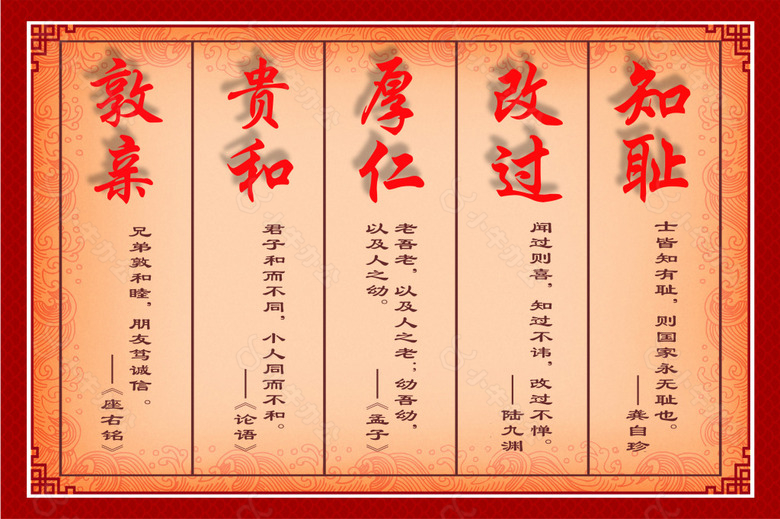 知耻
士皆知有耻，则国家永无耻也。
——龚自珍
改过
闻过则喜，知过不讳，改过不惮。
——陆九渊
厚仁
老吾老，以及人之老；幼吾幼，
以及人之幼。 ——《孟子》
贵和
君子和而不同，小人同而不和。
——《论语》
敦亲
兄弟敦和睦，朋友笃诚信。
——《座右铭》